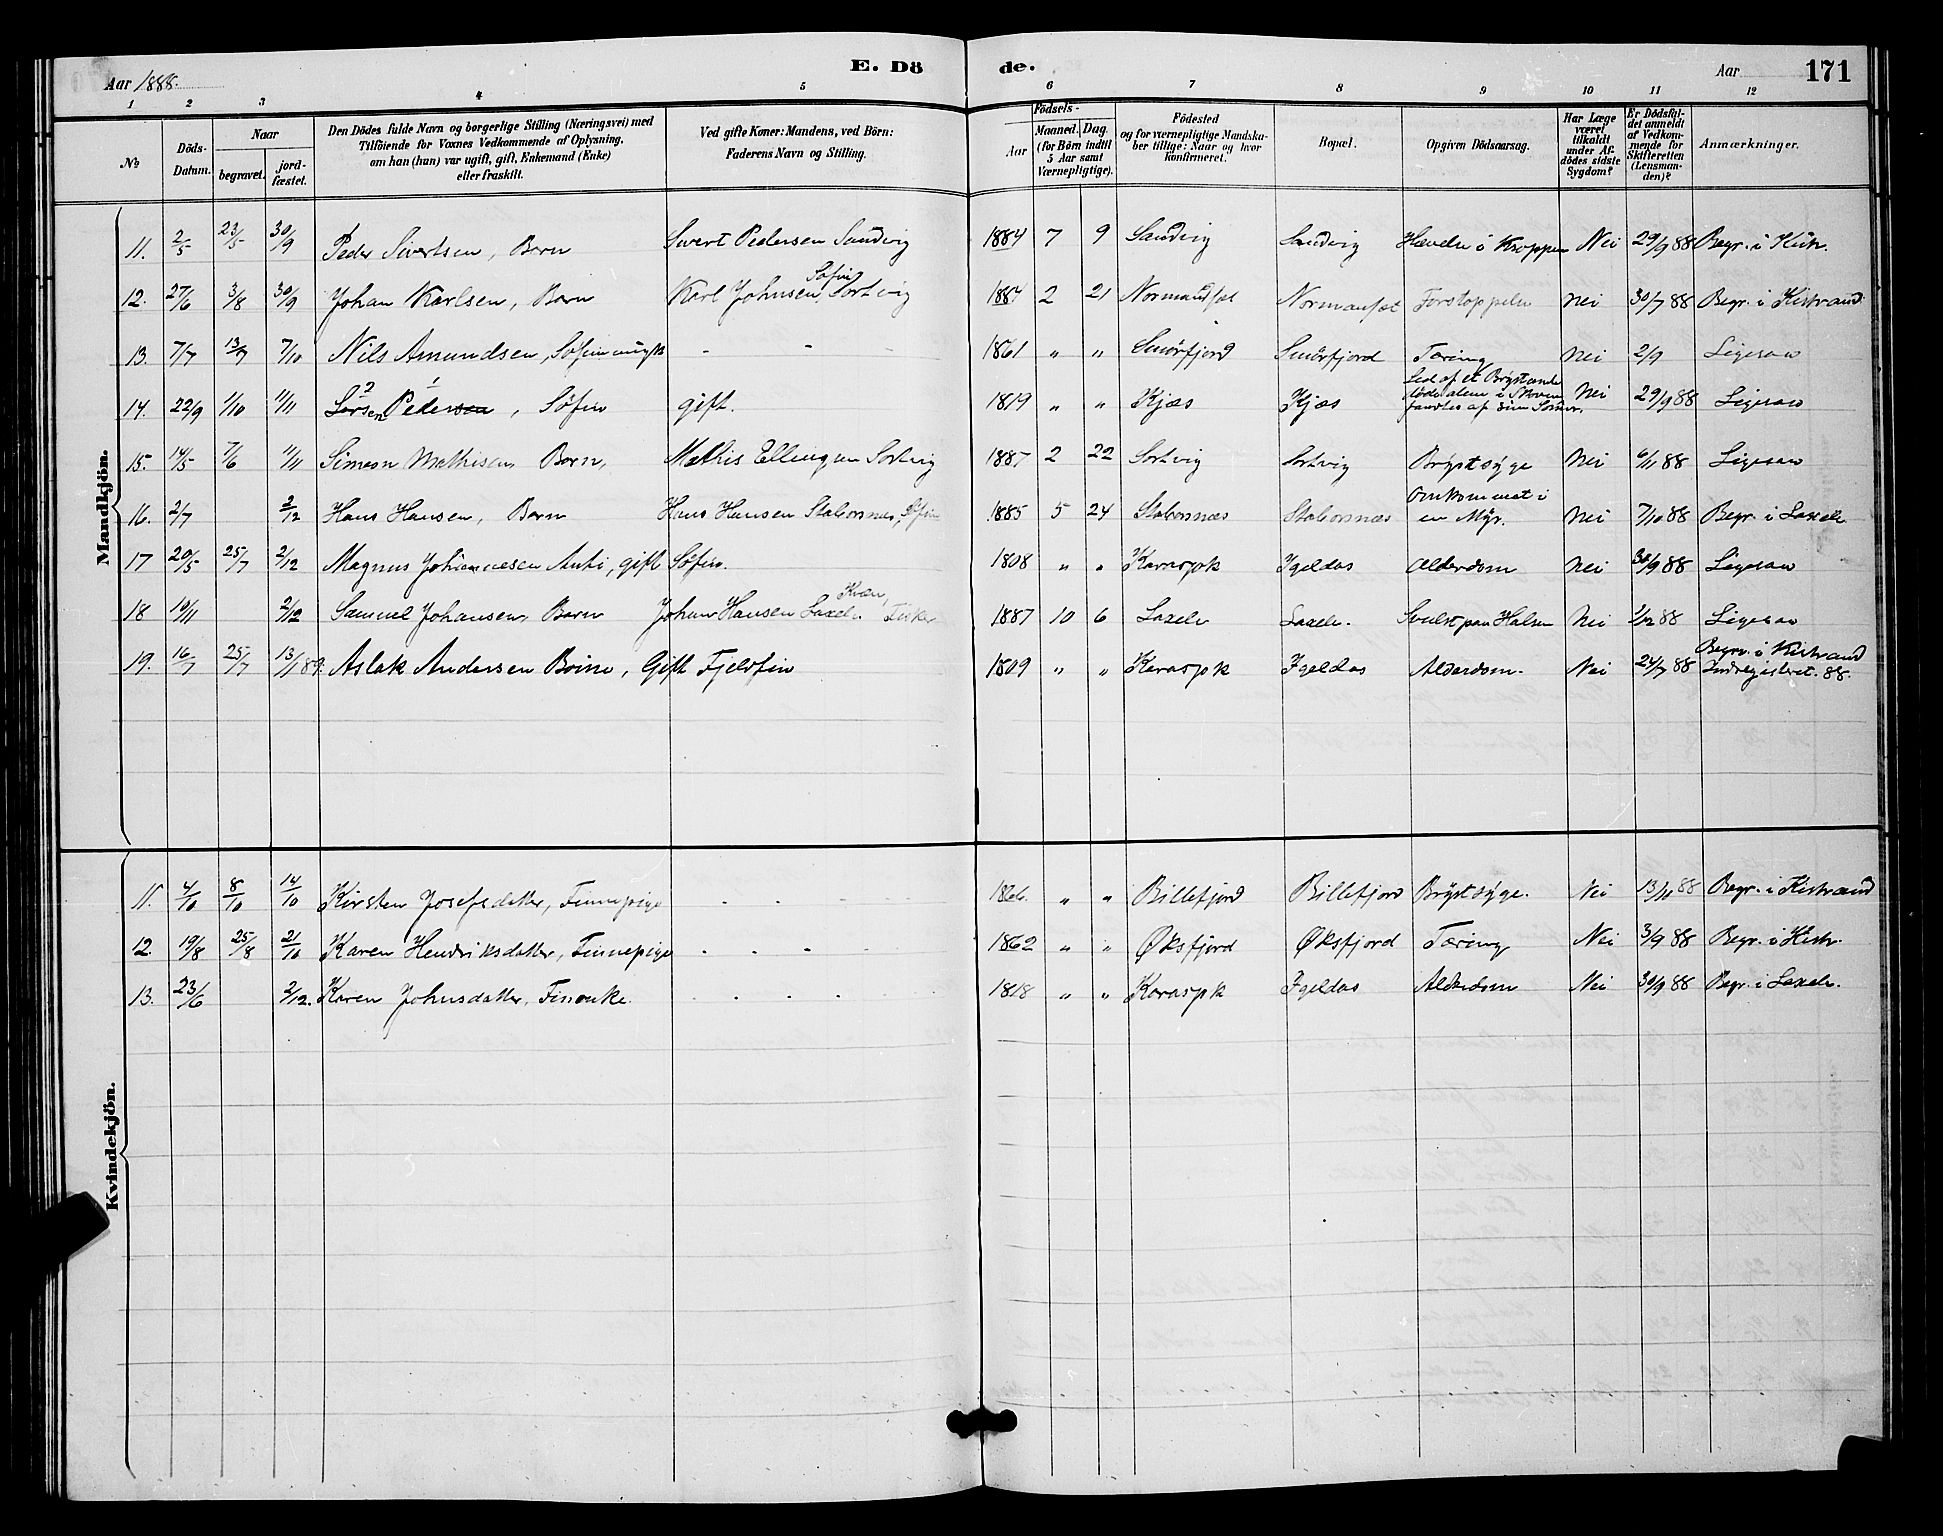 Aar 1888.
E. Dö
de.
Aar
171
1 2 3 4 5 6 7 8 9 10 11 12
No
Döds-
Datum.
Naar
begravet.
jord-
fæstet.
Den Dödes fulde Navn og borgerlige Stilling (Næringsvei) med
Tilföiende for Voxnes Vedkommende af Oplysning,
om han (hun) var ugift, gift, Enkemand (Enke)
eller fraskilt.
Ved gifte Koner: Mandens, ved Börn:
Faderens Navn og Stilling.
Födsels-
Aar
Maaned. Dag.
(for Børn indtil
5 Aar samt
Værnepligtige).
Födested
og for værnepligtige Mandska-
ber tillige: Naar og hvor
konfirmeret.
Bopæl.
Opgiven Dödsaarsag.
Har Læge
været
tilkaldt
under Af-
dödes sidste
Sygdom?
Er Dödsfal-
det anmeldt
af Vedkom-
mende for
Skifteretten
(Lensman-
den)?
Anmærkninger.
Mandkjön.
11. 2/5 23/5 30/9 Peder Sivertsen, Barn Sivert Pedersen Sandvig 1884 7 9 Sandvig Sandvig Hævelse i Kroppen Nei 29/9 88 Begr. i Kistr.
Søfin
12. 27/6 3/8 30/9 Johan Karlsen, Barn Karl Johnsen, Sortvig 1884 2 21 Normandset Normanset Forstoppelse Nei 30/7 88 Begr. i Kistrand
13. 7/7 13/7 7/10 Nils Amundsen, Søfinungk - - - 1861 " " Smörfjord Smörfjord Tæring Nei 2/9 Ligesaa
14. 22/9 1/10 11/11 Larsen Pedersen, Söfin gift. 1819 " " Kjæs Kjæs Led af et Brystonde Nei 29/9 88 Ligesaa
fandtes af sine
15. 14/5 7/6 11/11 Simeon Mathisen, Barn, Mathis Ellingsen Sortvig 1887 2 22 Sortvig Sortvig Brystsyge Nei 6/11 88 Ligesaa
16. 2/7 2/12 Hans Hansen, Barn Hans Hansen Stabursnæs, Söfin 1885 5 24 Stabursnæs Stabursnæs Omkommet i
en Myr. Nei 7/10 88 Begr. i Laxelv
17 20/5 25/7 2/12 Magnus Johannesen Anti, gift Søfin. 1808 " " Karasjok Igeldas Alderdom Nei 30/9 88 Ligesaa
Kvæn,
18 10/11 2/12 Samuel Johansen, Barn Johan Hansen Laxelv. Fisker 1887 10 6 Laxelv Laxelv. Svulst paa Halsen Nei 1/12 88 Ligesaa
19. 16/7 25/7 13/1 89. Aslak Andersen Boine, Gift Fjeldfin 1809 " " Karasjok Igeldas Alderdom. Nei 24/7 88 Begr. i Kistrand
Indregistreret. 88.
Kvindekjön.
11. 4/10 8/10 14/10 Kirsten Josefsdatter, Finnepige - - - - 1866. " " Billefjord Billefjord Brystsyge. Nei 13/10 88 Begr. i Kistrand
12. 19/8 25/8 21/10 Karen Hendriksdatter, Finnepige - - - - 1862 " " Øksfjord Øksfjord Tæring Nei 3/9 88 Begr. i Kistr.
13. 23/6 2/12. Karen Johnsdatter, Finenke. - - - - 1818 " " Karasjok Igeldas Alderdom Nei 30/9 88 Begr. i Laxelv.